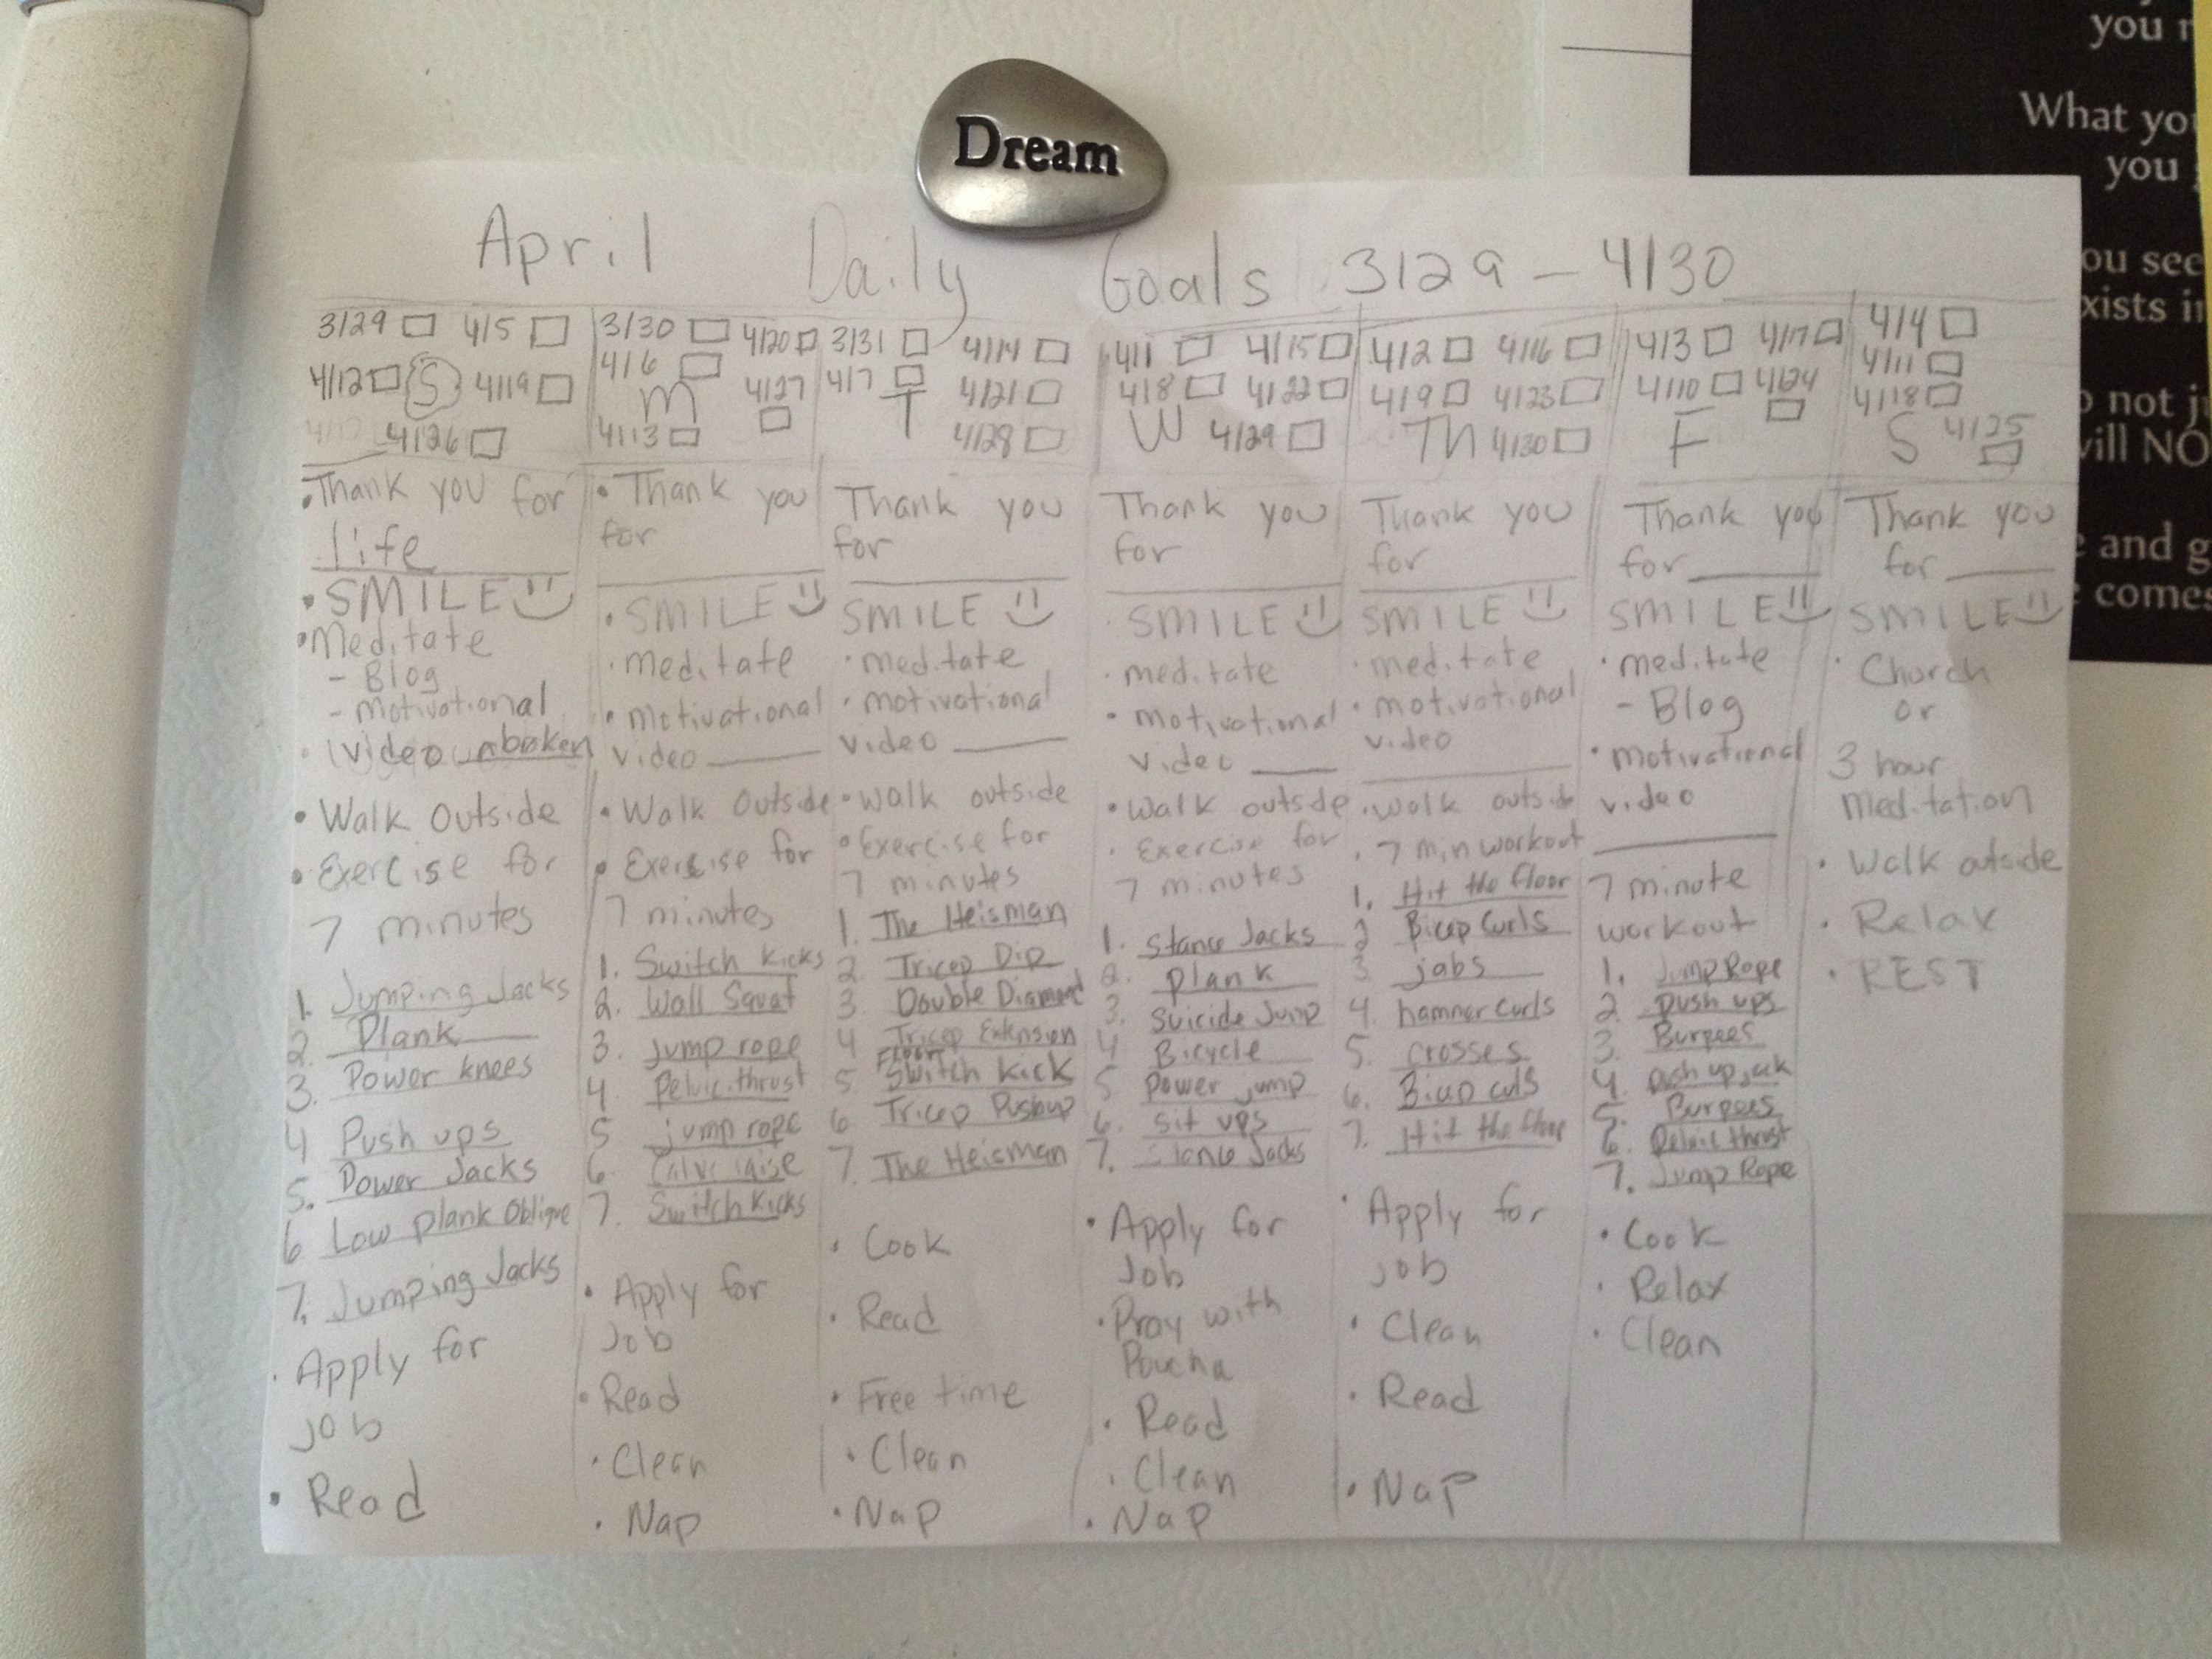 Dream
you
What yo
you
ou see
xists i
not j
ill NO
and g
comes
April Daily Goals 3/29 - 4/30
3/29 4/5
4/12 S 4/19
4/26
Thank you for
life
SMILE
Meditate
- Blog
- Motivational
video unbroken
Walk Outside
Exercise for
7 minutes
1. Jumping Jacks
2. Plank
3. Power knees
4 Push ups
5. Power Jacks
6 Low plank Oblique
7. Jumping Jacks
Apply for
job
Read
3/30 4/20
4/6
M 4/27
4/13
Thank you
for
SMILE
Meditate
Motivational
video
Walk Outside
Exercise for
7 minutes
1. Switch Kicks
2. Wall Squat
3. jump rope
4 Pelvic thrust
5 jump rope
6. Calve raise
7. Switch Kicks
Apply for
Job
Read
Clean
Nap
3/31 4/14
4/7 4/21
T
4/28
Thank you
for
SMILE
meditate
motivational
video
walk outside
Exercise for
7 minutes
1. The Heisman
2. Tricep Dip
3 Double Diamond
4 Tricep Extension
Floor
5 Switch Kick
6 Tricep Pushup
7. The Heisman
Cook
Read
Free time
Clean
Nap
4/1 4/15
4/8 4/22
W 4/29
Thank you
for
SMILE
meditate
motivational
video
walk outside
Exercise for
7 minutes
1. Stance Jacks
2. Plank
3. Suicide Jump
4 Bicycle
5 Power jump
6. Sit ups
7. Stance Jacks
Apply for
Job
Pray with
Read
Clean
Nap
4/2 4/16
4/9 4/23
Th 4/30
Thank you
for
SMILE
meditate
motivational
video
walk outside
7 min workout
1. Hit the floor
2 Bicep Curls
3 jabs
4 hammer curls
5. crosses
6. Bicep curls
7. Hit the floor
Apply for
job
Clean
Read
Nap
4/3 4/17
4/10 4/24
F
Thank you
for
SMILE
meditate
- Blog
motivational
video
7 minute
workout
1. Jump Rope
2. Push ups
3. Burpees
4. Push up jack
5. Burpees
6. Pelvic thrust
7. Jump Rope
Cook
Relax
Clean
4/4
4/11
4/18
S 4/25
Thank you
for
SMILE
Church
or
3 hour
Meditation
Walk outside
Relax
REST